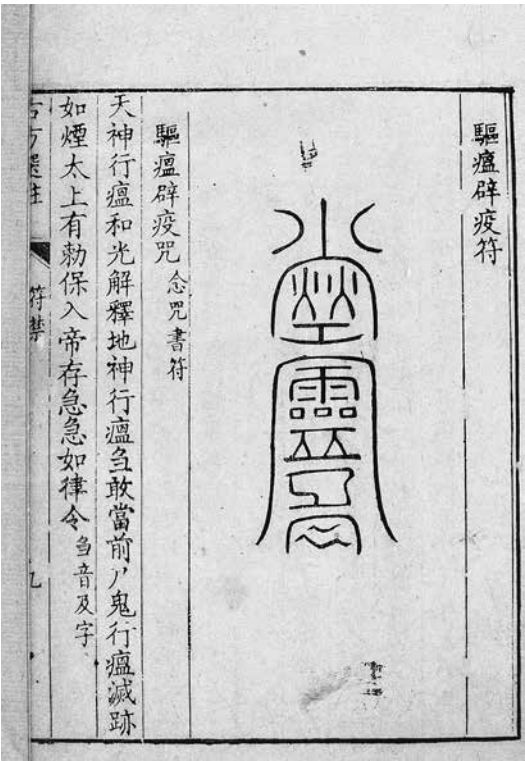 驅瘟辟疫符
驅瘟辟疫咒 念咒書符
天神行瘟和光解釋地神行瘟刍敢當前尸鬼行瘟滅跡
如煙太上有勅保入帝存急急如律令 刍音及字
古方選註 符禁 九